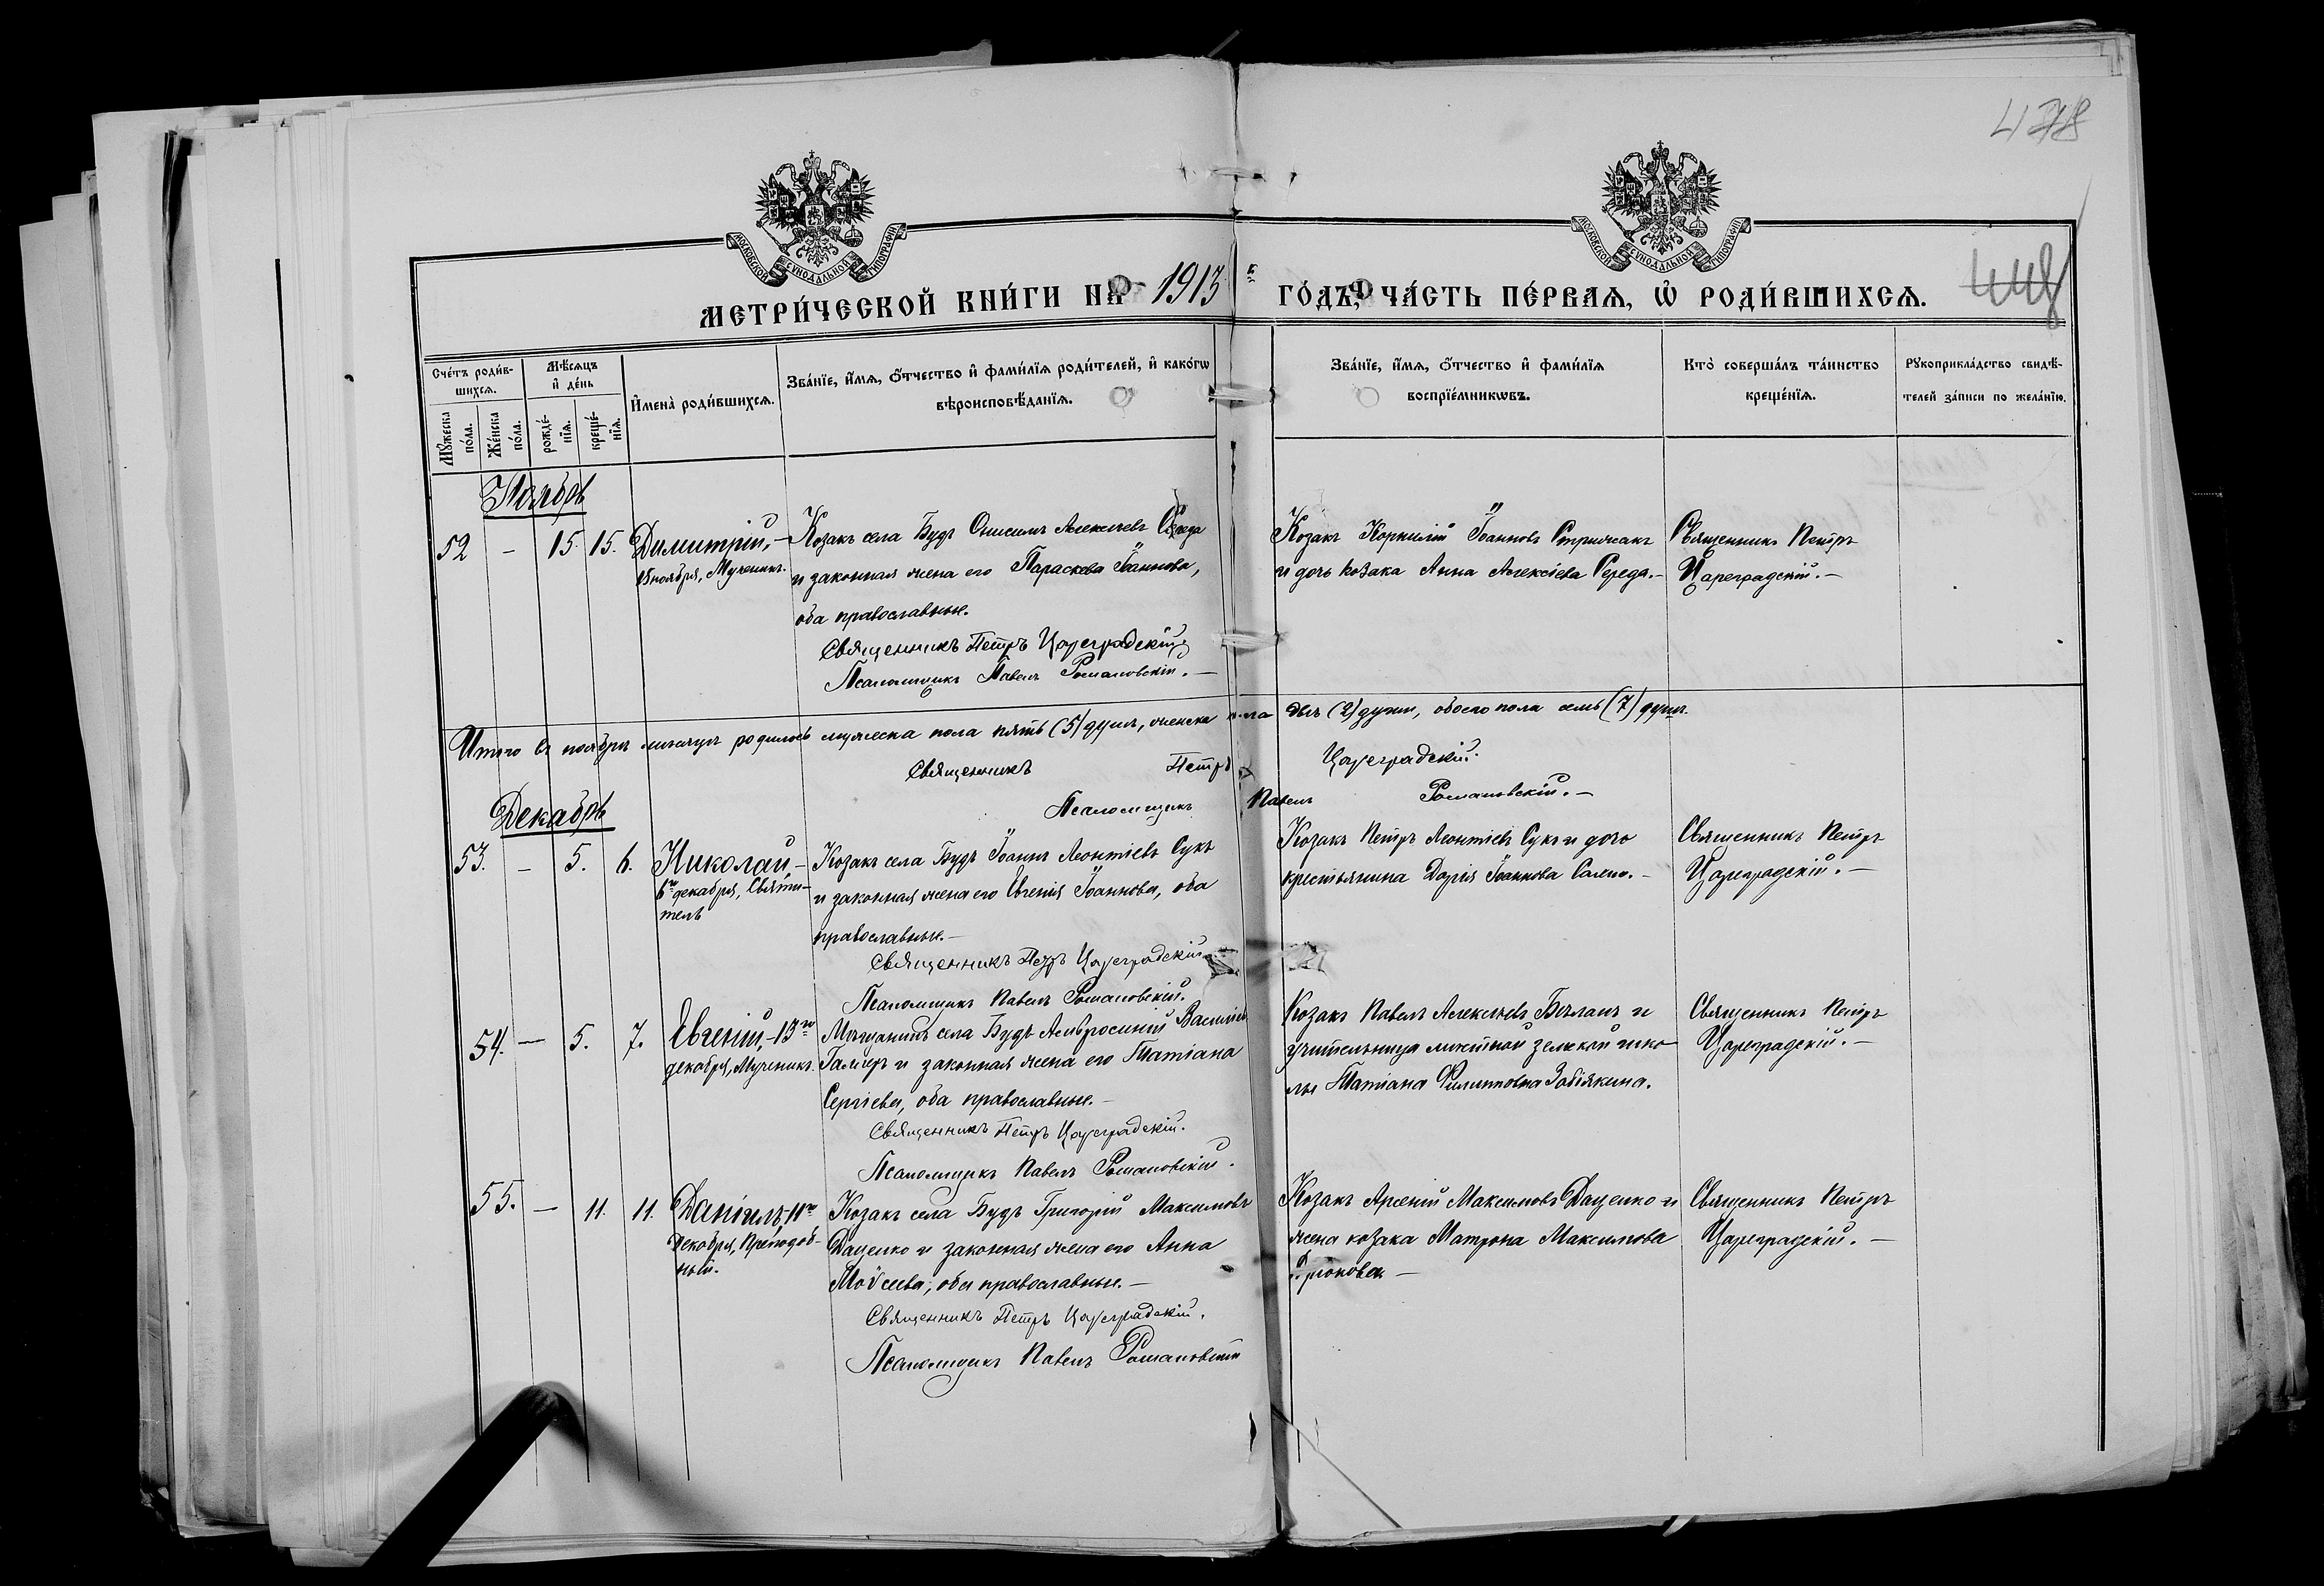 478
МОСКОВСКОЙ СѴНОДАЛЬНОЙ ТИПОГРАФІИ
МОСКОВСКОЙ СѴНОДАЛЬНОЙ ТИПОГРАФІИ
МЕТРИ́ЧЕСКОЙ КНИ́ГИ НА 1913 й ГО́ДЪ, ЧА́СТЬ ПЕ́РВАѦ, Ѡ҆ РОДИ́ВШИХСѦ.
448
Сче́тъ роди́в-
шихсѧ.
Мꙋ́жеска
по́ла.
Же́нска
по́ла.
Мѣ́сѧцъ
и҆ де́нь
рожде́-
нїѧ.
креще́-
нїѧ.
И҆мена̀ роди́вшихсѧ.
Зва́нїе, и҆́мѧ, ѻ҆́тчество и҆ фами́лїѧ роди́телей, и҆ како́гѡ
вѣроисповѣ́данїѧ.
Зва́нїе, и҆́мѧ, ѻ҆́тчество и҆ фами́лїѧ
воспрїе́мникѡвъ.
Кто̀ соверша́лъ та́инство
креще́нїѧ.
Рꙋкоприкла́дство свидѣ́-
телей за́писи по жела́нїю.
Ноябрь
52 – 15. 15. Димитрій, –
15 ноября, Мученикъ.
Козакъ села Будъ Онисимъ Алексѣевъ Середа
и законная жена его Параскева Іоаннова,
оба православные.
Священникъ Петръ Цареградскій
Псаломщикъ Павелъ Романовскій. –
Козакъ Корнилій Іоанновъ Стрижакъ
и дочь козака Анна Алексіева Середа. –
Священникъ Петръ
Цареградскій. –
Итого въ ноябрѣ мѣсяцѣ родилось мужеска пола пять (5) душъ, женска пола двѣ (2) души, обоего пола семь (7) душъ.
Священникъ Петръ Цареградскій.
Псаломщикъ Павелъ Романовскій. –
Декабрь
53. – 5. 6. Николай, –
6го декабря, Святи-
тель
Козакъ села Будъ Іоаннъ Леонтіевъ Сукъ
и законная жена его Евгенія Іоаннова, оба
православные. –
Священникъ Петръ Цареградскій
Псаломщикъ Павелъ Романовскій.
Козакъ Петръ Леонтіевъ Сукъ и дочь
крестьянина Дарія Іоаннова –
Священникъ Петръ
Цареградскій. –
54. – 5. 7. Евгеній, – 13го
декабря, Мученикъ.
Мѣщанинъ села Будъ Амвросій Васильевъ
и законная жена его Татіана
Сергіева, оба православные. –
Священникъ Петръ Цареградскій.
Псаломщикъ Павелъ Романовскій.
Козакъ Павелъ Алексѣевъ и
учительница мѣстной земской шко-
лы Татіана Филиповна Забіякина.
Священникъ Петръ
Цареградскій. –
55. – 11. 11. Даніилъ, 11го
Декабря, Преподоб-
ный.
Козакъ села Будъ Григорій Максимовъ
Даценко и законная жена его Анна
Моѵсеева, оба православные. –
Священникъ Петръ Цареградскій.
Псаломщикъ Павелъ Романовскій
Козакъ Арсеній Максимовъ Даценко и
жена козака Матрона Максимова
–
Священникъ Петръ
Цареградскій. –